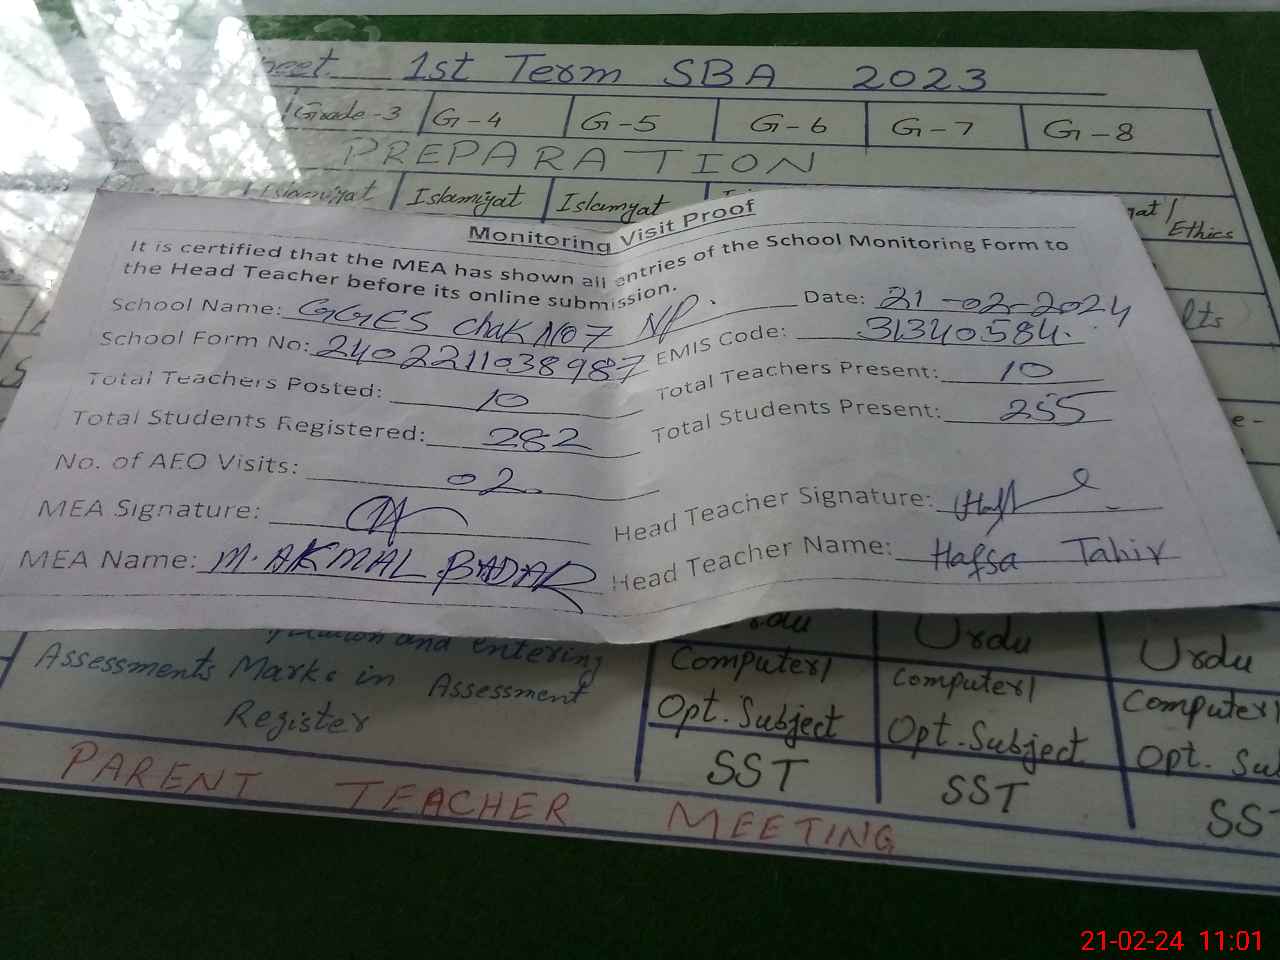 heet. 1st Term SBA 2023
Grade-3 G-4 G-5 G-6 G-7 G-8
PREPARATION
Islamiyat Islamiyat Islamyat
Ethics
Monitoring Visit Proof
It is certified that the MEA has shown all entries of the School Monitoring Form to
the Head Teacher before its online submission.
School Name: GGES Chak NO 7 NP. Date: 21-02-2024
School Form No: 2402211038987 EMIS Code: 31340584.
Total Teachers Posted: 10 Total Teachers Present: 10
Total Students Registered: 282 Total Students Present: 255
No. of AEO Visits: 02
MEA Signature: Head Teacher Signature:
MEA Name: M. AKMAL BADAR Head Teacher Name: Hafsa Tahir
and entering Urdu Urdu
Assessments Marks in Assessment Computer/ Computer/ Computer/
Register Opt. Subject Opt. Subject Opt. Su
SST SST SS
PARENT TEACHER MEETING
21-02-24 11:01